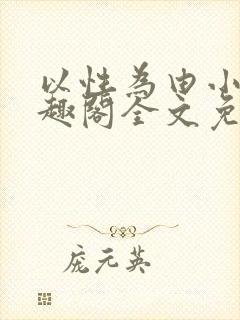 以性为由小
趣阁全文免
庞元英